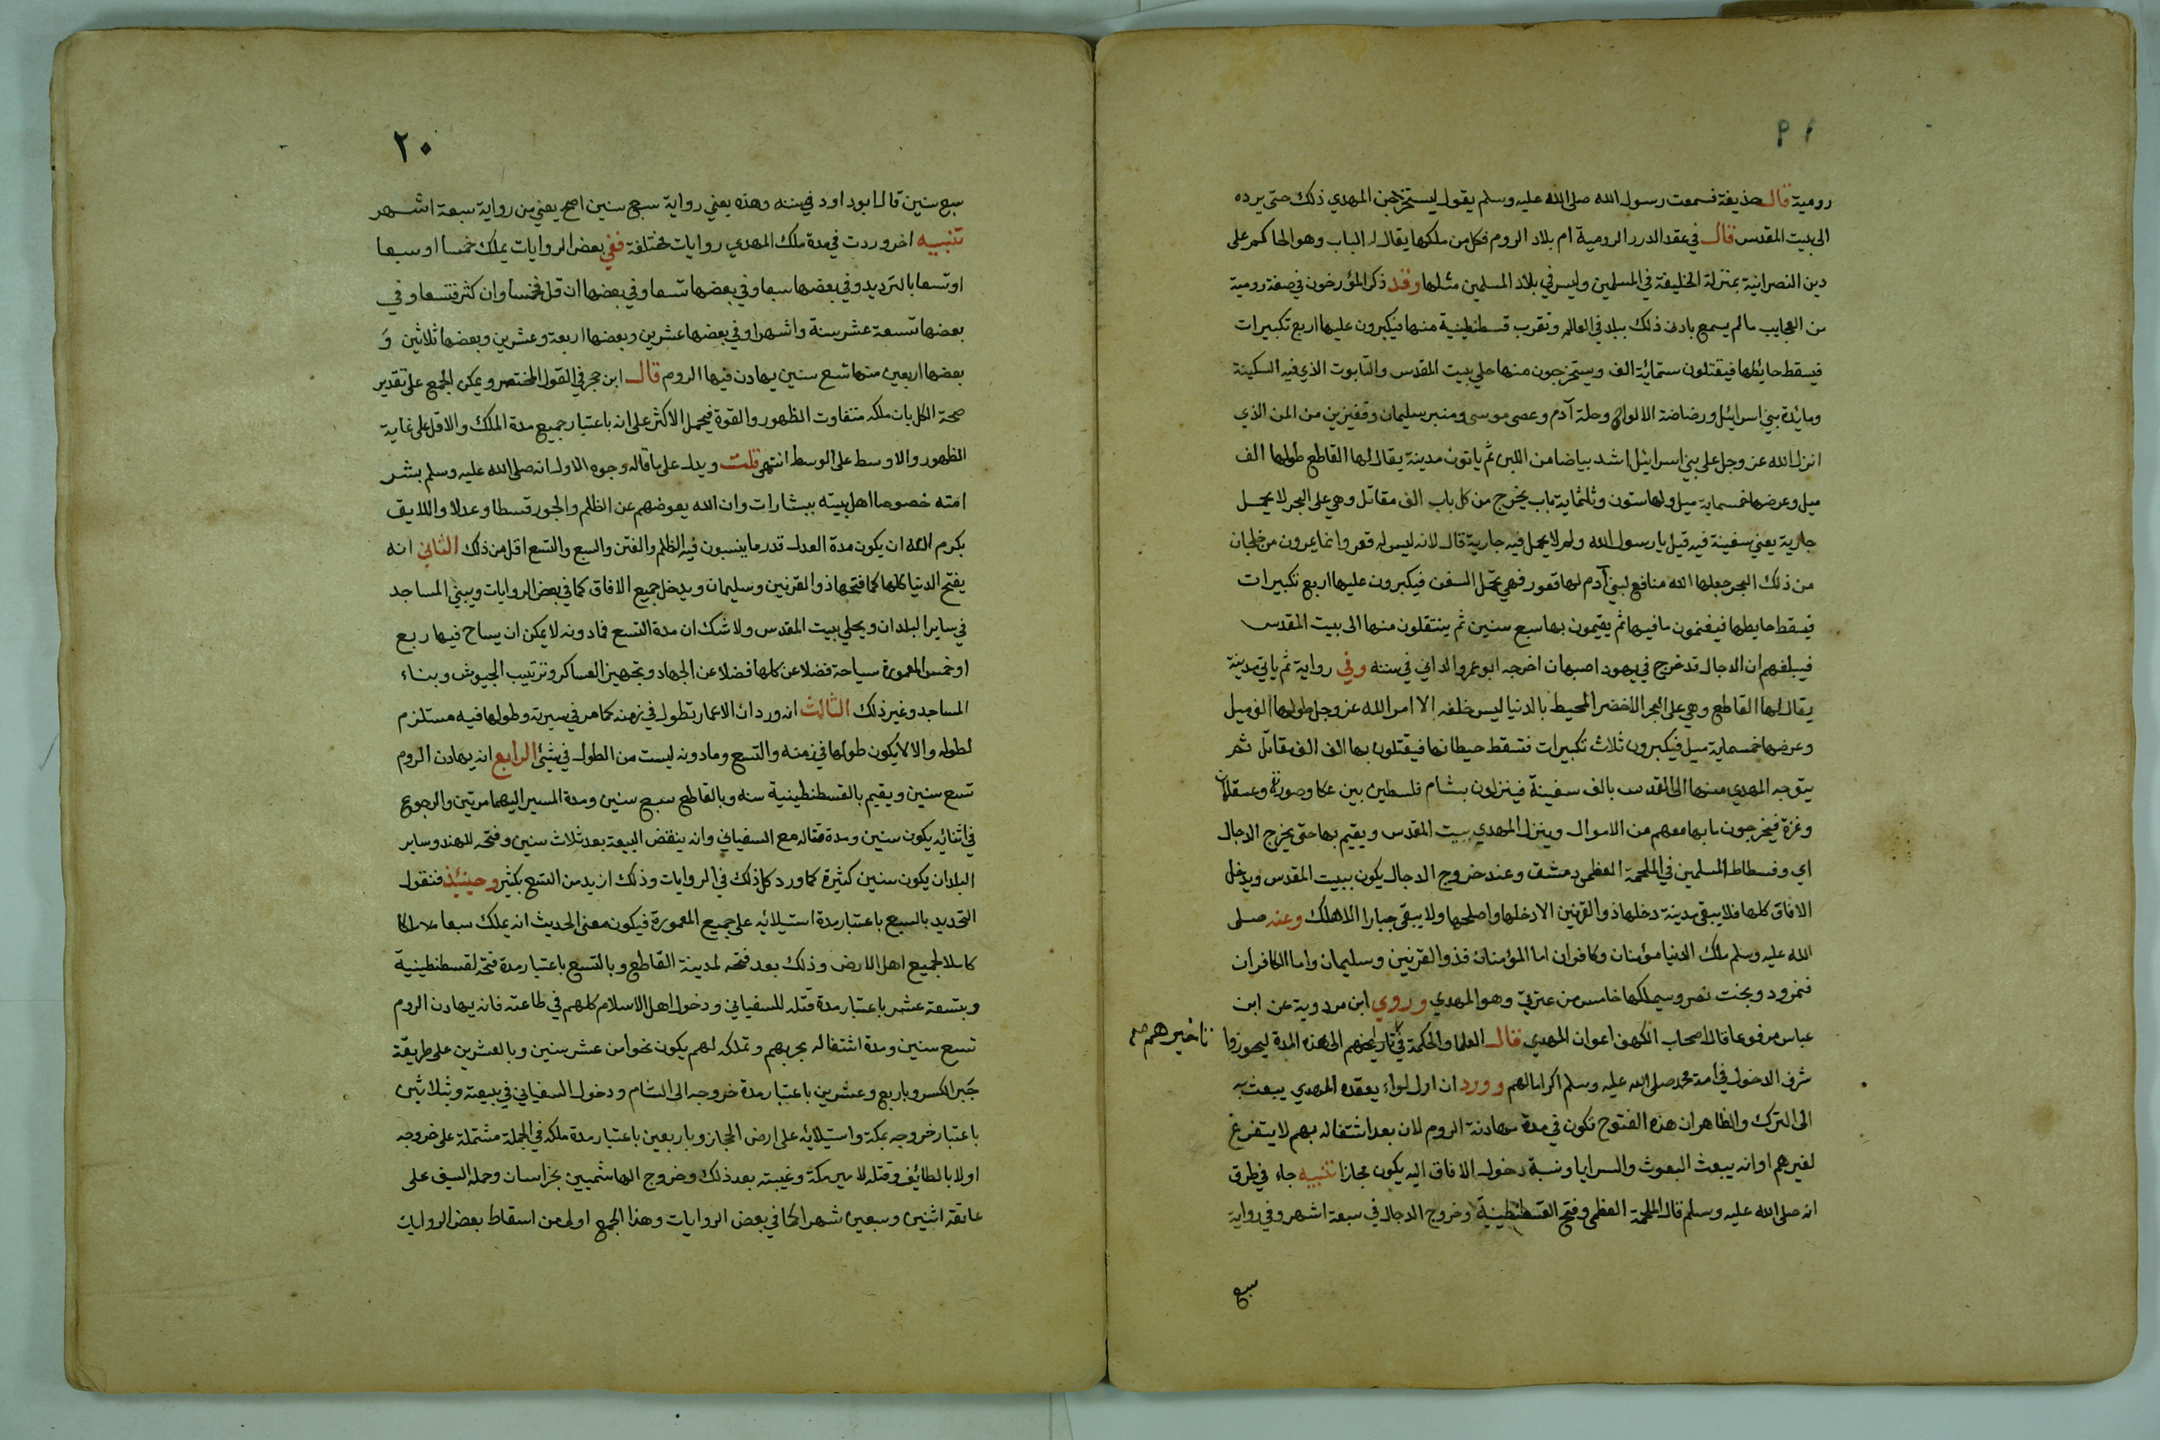 ١٩
رومية قال حذيفة فسمعت رسول الله صلى الله عليه وسلم يقول ليستخرجن المهدي ذلك حتى يرده
الى بيت المقدس قال في عقد الدرر الرومية ام بلاد الروم فكل من ملكها يقال له الباب وهو الحاكم على
دين النصرانية بمنزلة الخليفة في المسلمين وليس في بلاد المسلمين مثلها وقد ذكر المؤرخون في صفة رومية
من العجايب ما لم يسمع بادنى ذلك ببلد في العالم وتقرب قسطنطينية منها فيكبرون عليها اربع تكبيرات
فيسقط حائطها فيقتلون ستمائة الف ويستخرجون منها حلي بيت المقدس والتابوت الذي فيه السكينة
ومائدة بني اسرائيل ورضاضة الالواح وحلة آدم وعصى موسى ومنبر سليمان وقفيزين من المن الذي
انزل الله عز وجل على بني اسرائيل اشد بياضا من اللبن ثم ياتون مدينة يقال لها القاطع طولها الف
ميل وعرضها خمسماية ميل ولها ستون وثلثماية باب يخرج من كل باب الف مقاتل وهي على البحر لا يحمل
جارية يعني سفينة فيه قيل يا رسول الله ولم لا يحمل فيه جارية قال لانه ليس له قعر وانما يمرون من خلجان
من ذلك البحر جعلها الله منافع لبني آدم لها قعور فهي تحمل السفن فيكبرون عليها اربع تكبيرات
فيسقط حايطها فيغنمون ما فيها ثم يقيمون بها سبع سنين ثم ينتقلون منها الى بيت المقدس
فيبلغهم ان الدجال قد خرج في يهود اصبهان اخرجه ابو عمرو الداني في سننه وفي رواية ثم ياتي مدينة
يقال لها القاطع وهي على البحر الاخضر المحيط بالدنيا ليس خلفه الا امر الله عز وجل طولها الف ميل
وعرضها خمسماية ميل فيكبرون ثلاث تكبيرات فتسقط حيطانها فيقتلون بها الف الف مقاتل ثم
يتوجه المهدي منها الى القدس بالف سفينة فينزلون بشام فلسطين بين عكا وصورة وعسقلان
وغزة فيخرجون ما بها معهم من الاموال وينزل المهدي بيت المقدس ويقيم بها حتى يخرج الدجال
اي وفسطاط المسلمين في الملحمة العظمى دمشق وعند خروج الدجال يكون ببيت المقدس ويدخل
الافاق كلها فلا يبقى مدينة دخلها ذو القرنين الا دخلها واصلحها ولا يبقى جبارا الا هلك وعنه صلى
الله عليه وسلم ملك الدنيا مؤمنان وكافران اما المؤمنان فذو القرنين وسليمان واما الكافران
فنمرود وبخت نصر وسيملكها خامس من عترتي وهو المهدي وروي ابن مردوية عن ابن
عباس مرفوعا قال اصحاب الكهف اعوان المهدي قال العلما والحكمة في تاخيرهم الى هذه المدة ليحوزوا
تاخيرهم صح
شرف الدخول في امة محمد صلى الله عليه وسلم اكراما لهم وورد ان اول لواء يعقده المهدي يبعث به
الى الترك والظاهر ان هذه الفتوح تكون في مدة مهادنة الروم لان بعد اشتغاله بهم لا يتفرغ
لغيرهم او انه يبعث البعوث والسرايا ونسبة دخول الافاق اليه يكون مجازا تنبيه جاء في طرق
انه صلى الله عليه وسلم قال الملحمة العظمى وفتح القسطنطينية وخروج الدجال في سبعة اشهر وفي رواية
سبع
٢٠
سبع سنين قال ابو داود في سننه وهذه يعني رواية سبع سنين اصح يعني من رواية سبعة اشهر
تنبيه اخر وردت في مدة ملك المهدي روايات مختلفة ففي بعض الروايات يملك خمسا او سبعا
او تسعا بالترديد وفي بعضها سبعا وفي بعضها تسعا وفي بعضها ان قل فخمسا وان كثر فتسعا وفي
بعضها تسعة عشر سنة واشهرا وفي بعضها عشرين وبعضها اربعة وعشرين وبعضها ثلاثين و
بعضها اربعين منها تسع سنين يهادن فيها الروم قال ابن حجر في القول المختصر ويمكن الجمع على تقدير
صحة الكل بان ملكه متفاوت الظهور والقوة فيحمل الاكثر على انه باعتبار جميع مدة الملك والاقل على غاية
الظهور والاوسط على الوسط انتهى قلت ويدل على ما قاله وجوه الاول انه صلى الله عليه وسلم بشر
امته خصوصا اهل بيته ببشارات وان الله يعوضهم عن الظلم والجور قسطا وعدلا واللايق
بكرم الله ان يكون مدة العدل قدر ما ينسون فيه الظلم والفتن والسبع والتسع اقل من ذلك الثاني انه
يفتح الدنيا كلها كما فتحها ذو القرنين وسليمان ويدخل جميع الافاق كما في بعض الروايات ويبني المساجد
في ساير البلدان ويحلي بيت المقدس ولا شك ان مدة التسع فما دونه لا يمكن ان يساح فيها ربع
او خمس المعمورة سياحة فضلا عن كلها فضلا عن الجهاد وتجهيز العساكر وترتيب الجيوش وبناء
المساجد وغير ذلك الثالث انه ورد ان الاعمار تطول في زمنه كما مر في سيرته وطولها فيه مستلزم
لطوله والا لا يكون طولها في زمنه والتسع وما دونه ليست من الطول في شئ الرابع انه يهادن الروم
تسع سنين ويقيم بالقسطنطينية سنه وبالقاطع سبع سنين ومدة المسير اليهما مرتين والرجوع
في اثنائه يكون سنين ومدة قتاله مع السفياني وانه ينقض البيعة بعد ثلاث سنين وفتحه للهند وساير
البلدان يكون سنين كثيرة كما ورد كل ذلك في الروايات وذلك ازيد من التسع بكثير وحينئذ فنقول
التحديد بالسبع باعتبار مدة استيلائه على جميع المعمورة فيكون معنى الحديث انه يملك سبعا ملكا
كاملا لجميع اهل الارض وذلك بعد فتحه لمدينة القاطع وبالتسع باعتبار مدة فتحه لقسطنطينية
وبتسعة عشر باعتبار مدة قتله للسفياني ودخول اهل الاسلام كلهم في طاعته فانه يهادن الروم
تسع سنين ومدة اشتغاله بحربهم وتملكه لهم يكون نحوا من عشر سنين وبالعشرين على طريقة
جبر الكسر وباربع وعشرين باعتبار مدة خروجه الى الشام ودخول السفياني في بيعته وبثلاثين
باعتبار خروجه بمكة واستيلائه على ارض الحجاز وباربعين باعتبار مدة ملكه في الجملة مشتملة على خروجه
اولا بالطائف وقتله لامير مكة وغيبته بعد ذلك وخروج الهاشميين بخراسان وحمله السيف على
عاتقه اثنين وسبعين شهرا كما في بعض الروايات وهذا الجمع اولى من اسقاط بعض الروايات